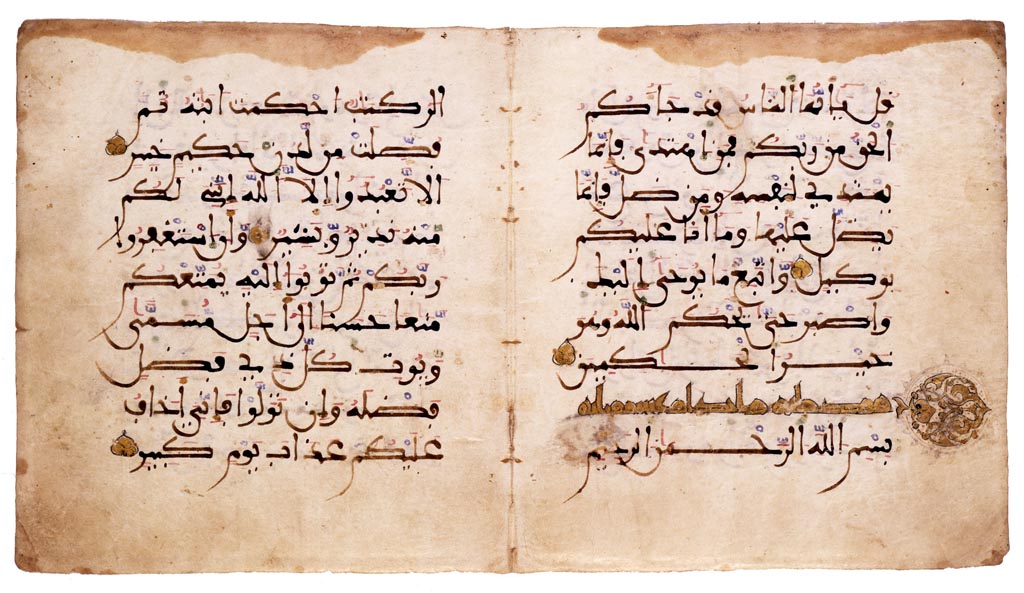 قل يأيها الناس قد جاكم
الحق من ربكم فمن اهتدى فإنما
يهتدي لنفسه ومن ضل فإنما
يضل عليها وما أنا عليكم
بوكيل واتبع ما يوحى إليك
واصبر حتى يحكم الله وهو
خير الحكمين
بسم الله الرحمن الرحيم
الر كتب احكمت ايته ثم
فصلت من لدن حكيم خبير
الا تعبدوا إلا الله إنني لكم
منه نذير وبشير وأن استغفروا
ربكم ثم توبوا إليه يمتعكم
متعا حسنا إلى أجل مسمى
ويوت كل ذي فضل
فضله وإن تولوا فإني أخاف
عليكم عذاب يوم كبير